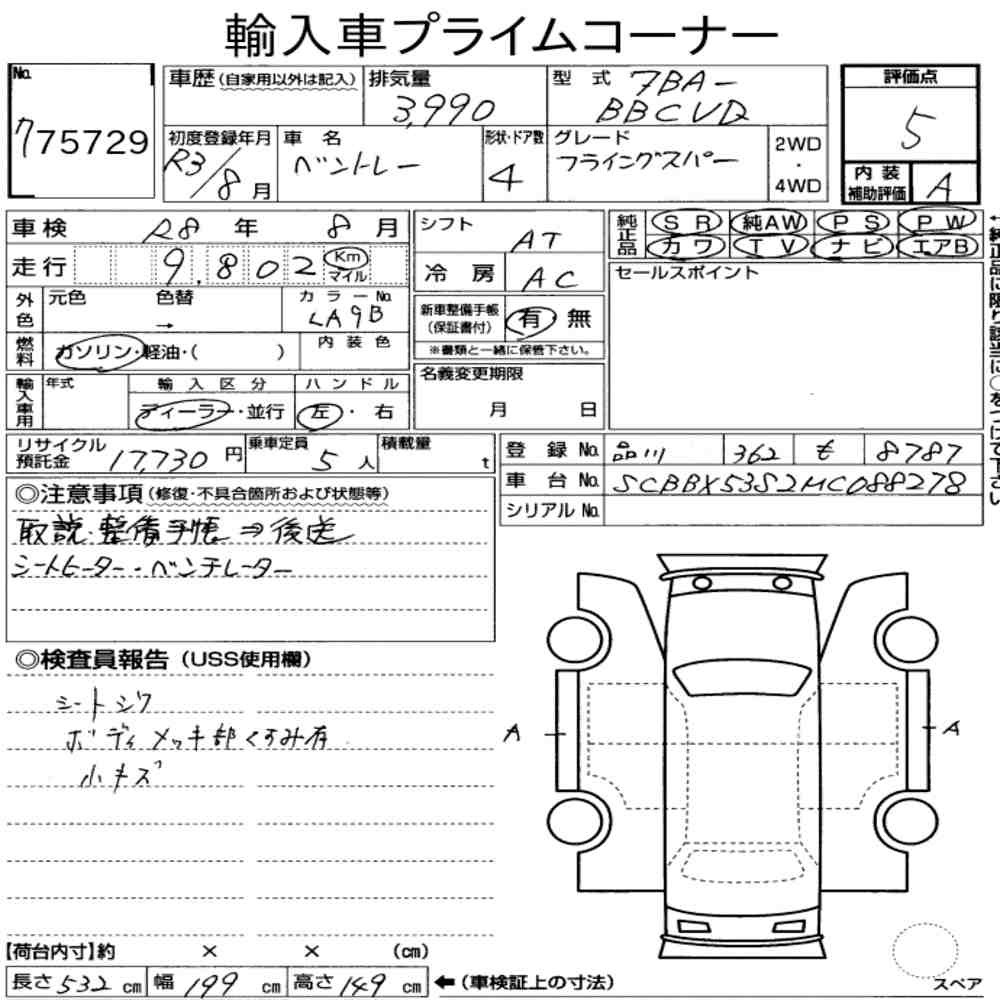 輸入車プライムコーナー
No.
775729
車歴(自家用以外は記入)
排気量
3,990
型式 7BA-
BBCVD
評価点
5
初度登録年月
R3/8月
車名
ベントレー
形状・ドア数
4
グレード
フライングスパー
2WD
・
4WD
内装
補助評価
A
車検 R8年 8月
走行 9,802 Km
マイル
外色
元色 色替
→
カラーNo.
LA9B
燃料
ガソリン・軽油・( )
内装色
輸入車用
年式
輸入区分
ディーラー・並行
ハンドル
左・右
シフト AT
冷房 AC
新車整備手帳
(保証書付)
有 無
※書類と一緒に保管下さい。
名義変更期限
月 日
純正品
SR 純AW PS PW
カワ TV ナビ エアB
←純正品に限り該当に○をつけて下さい
セールスポイント
リサイクル
預託金 17,730円
乗車定員
5人
積載量
t
登録No. 品川 362 も 8787
車台No. SCBBX53S2MC088278
シリアルNo.
◎注意事項(修復・不具合箇所および状態等)
取説・整備手帳⇒後送
シートヒーター・ベンチレーター
◎検査員報告(USS使用欄)
シートシワ
ボディメッキ部くすみ有
小キズ
A
A
【荷台内寸】約 × × (cm)
長さ532cm 幅199cm 高さ149cm ←(車検証上の寸法)
スペア